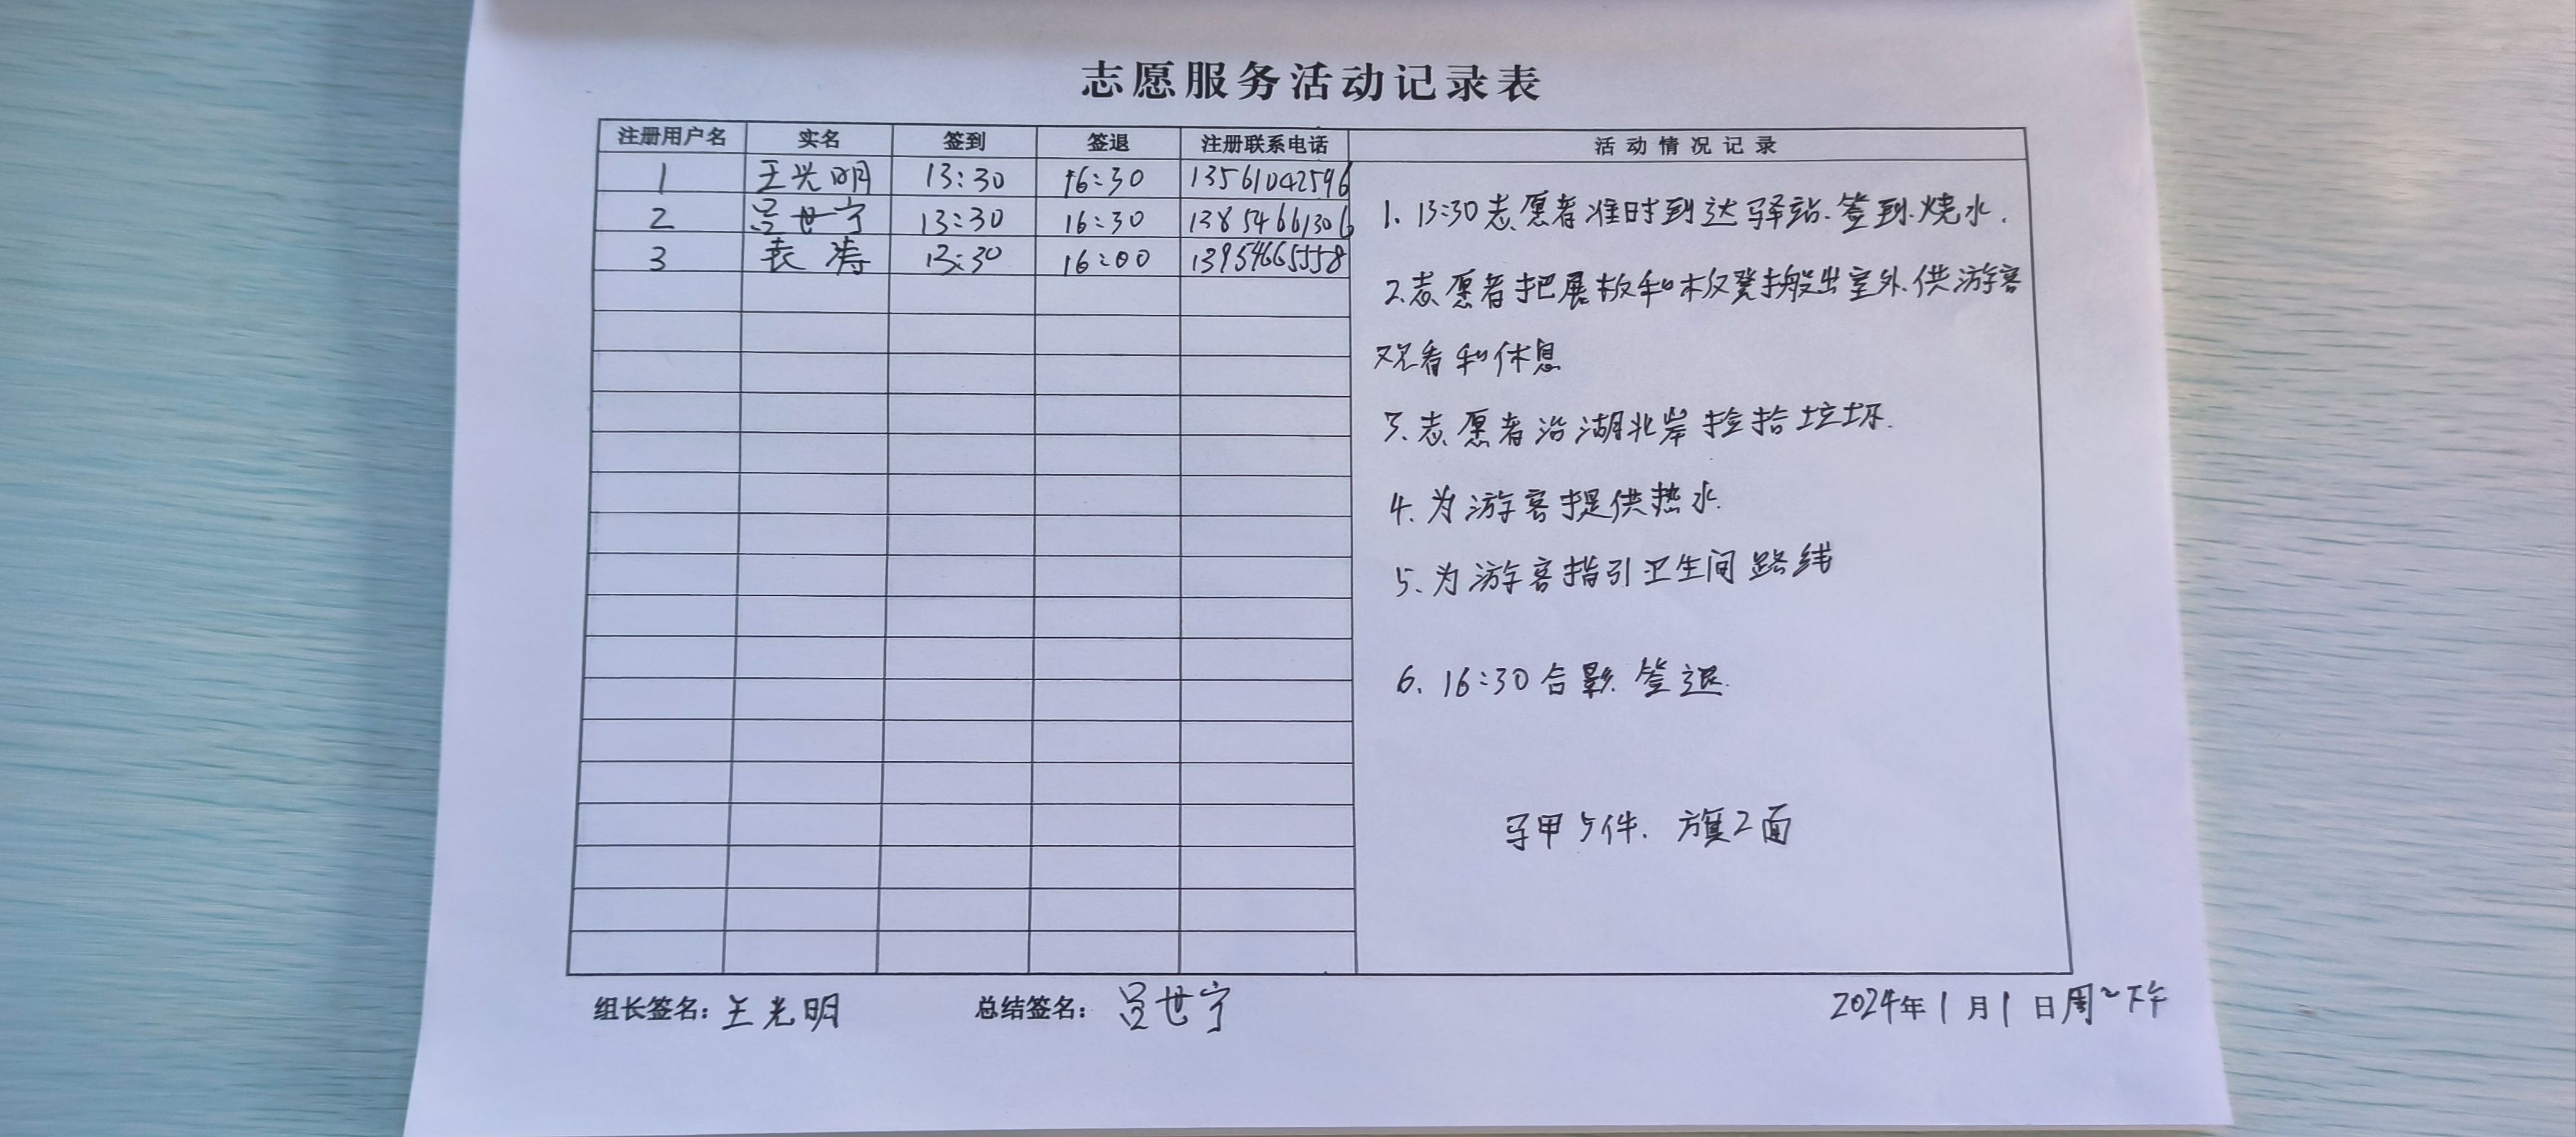 志愿服务活动记录表
注册用户名 实名 签到 签退 注册联系电话 活动情况记录
1 王光明 13:30 16:30 13561042596
2 吕世宁 13:30 16:30 13854661306
3 袁涛 13:30 16:00 13954665558
1. 13:30志愿者准时到达驿站.签到.烧水.
2.志愿者把展板和板凳搬出室外.供游客
观看和休息
3.志愿者沿湖北岸捡拾垃圾.
4.为游客提供热水.
5.为游客指引卫生间路线
6. 16:30合影.签退.
马甲5件. 旗2面
组长签名：王光明 总结签名：吕世宁 2024年1月1日周一下午